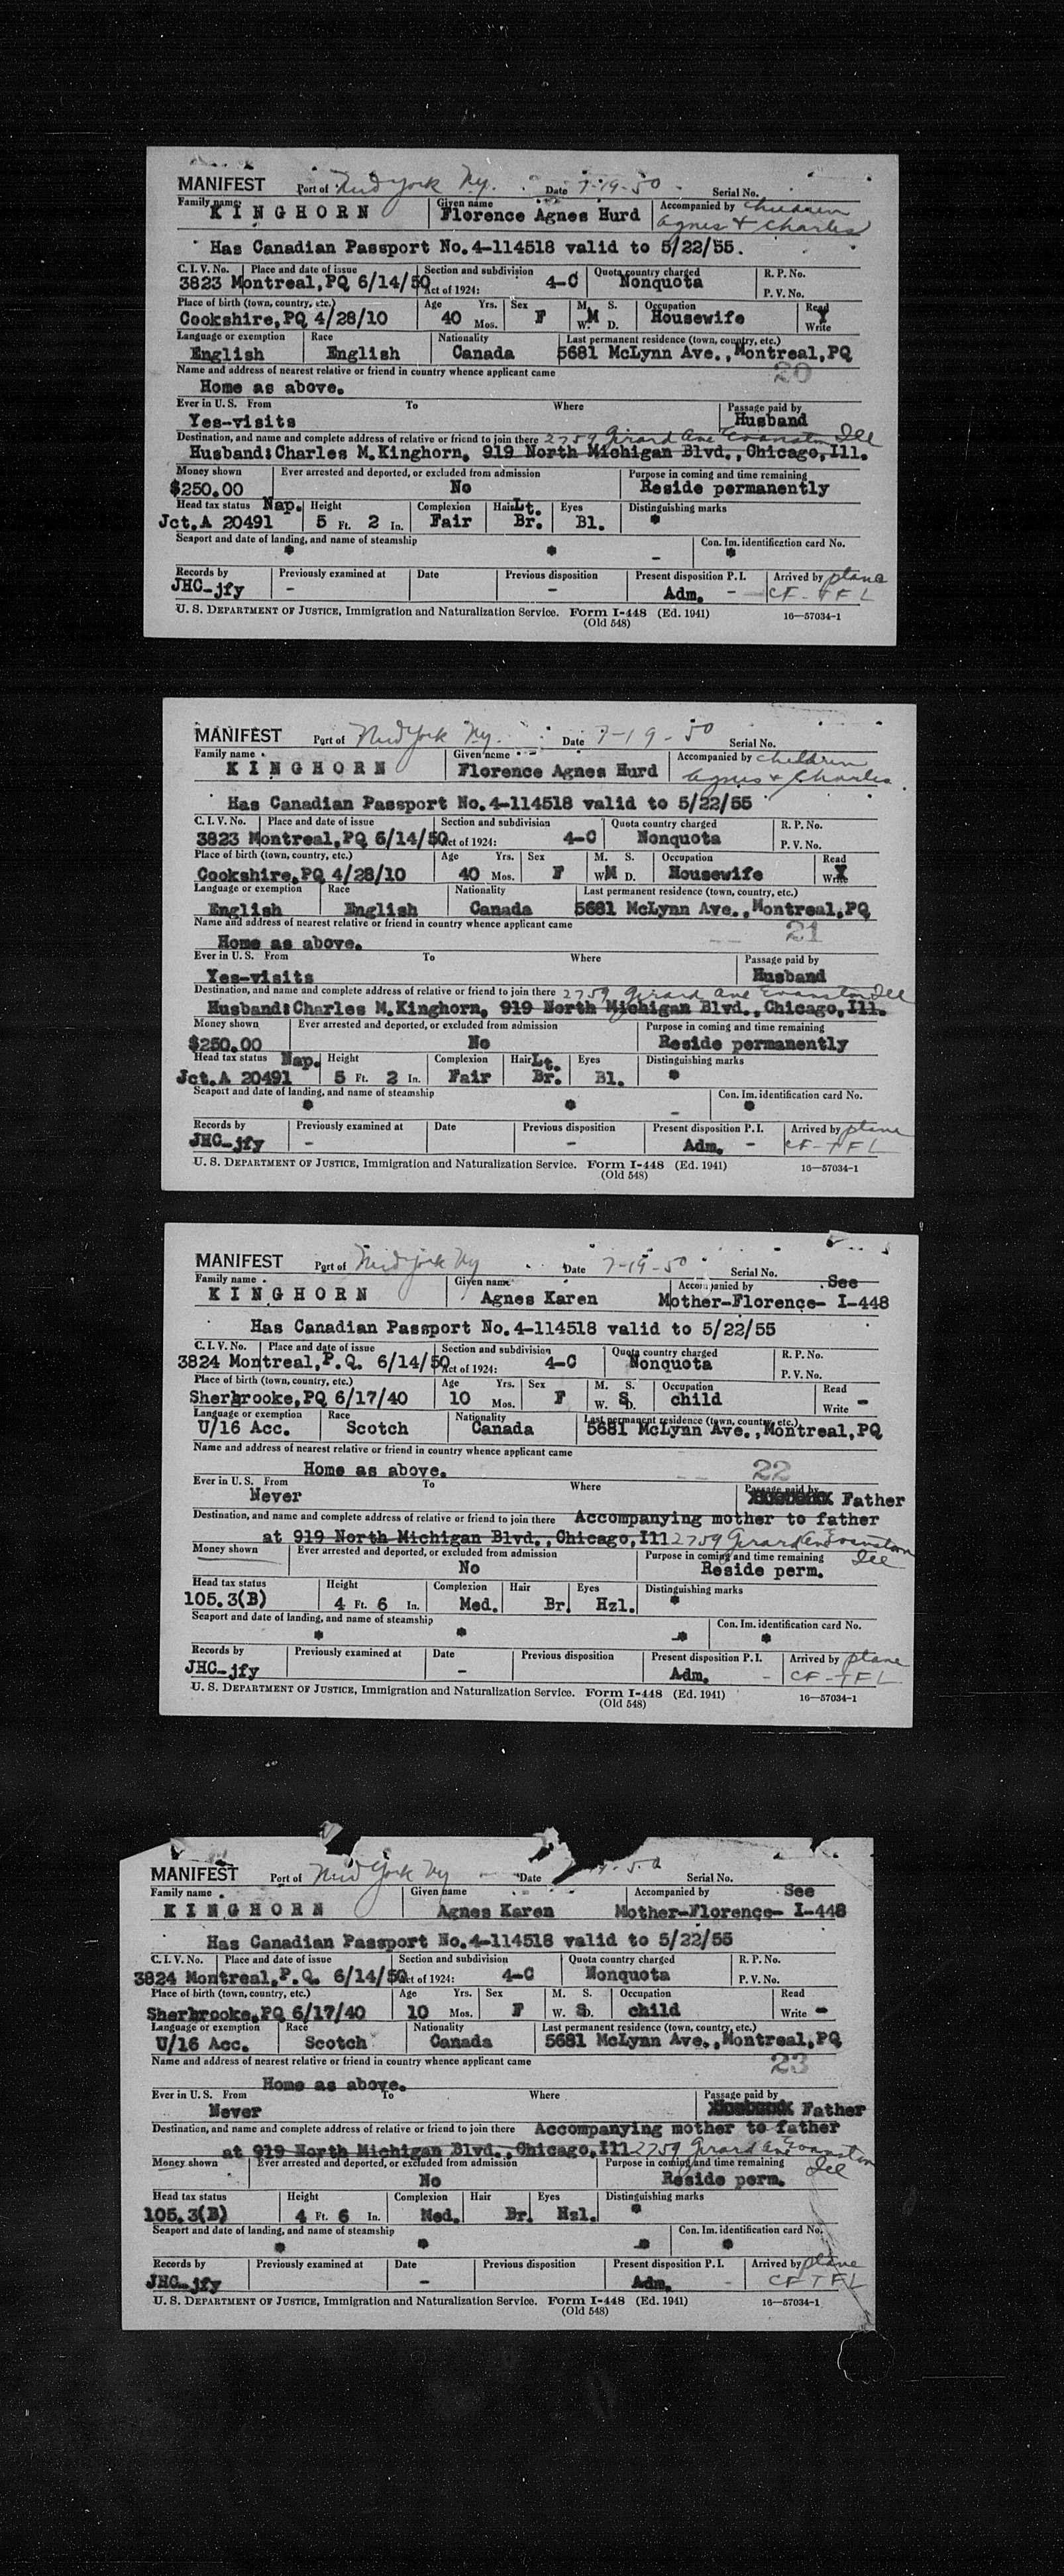 MANIFEST Port of New York Ny. Date 7-19-50 Serial No.
Family name Given name Accompanied by children
KINGHORN Florence Agnes Hurd Agnes + Charles
Has Canadian Passport No.4-114518 valid to 5/22/55.
C. I. V. No. Place and date of issue Section and subdivision Quota country charged R. P. No.
3823 Montreal,PQ 6/14/50 Act of 1924: 4-C Nonquota P. V. No.
Place of birth (town, country, etc.) Age Yrs. Sex M. S. Occupation Read
Cookshire,PQ 4/28/10 40 Mos. F W. M D. Housewife Y Write
Language or exemption Race Nationality Last permanent residence (town, country, etc.)
English English Canada 5681 McLynn Ave.,Montreal,PQ
Name and address of nearest relative or friend in country whence applicant came 20
Home as above.
Ever in U. S. From To Where Passage paid by
Yes-visits Husband
Destination, and name and complete address of relative or friend to join there 2759 Girard Ave Evanston Ill
Husband:Charles M.Kinghorn, 919 North Michigan Blvd.,Chicago,Ill.
Money shown Ever arrested and deported, or excluded from admission Purpose in coming and time remaining
$250.00 No Reside permanently
Head tax status Nap. Height Complexion Hair Lt. Eyes Distinguishing marks
Jct.A 20491 5 Ft. 2 In. Fair Br. Bl. *
Seaport and date of landing, and name of steamship Con. Im. identification card No.
* * - *
Records by Previously examined at Date Previous disposition Present disposition P. I. Arrived by plane
JHC-jfy - - Adm. - CF-TFL
U. S. DEPARTMENT OF JUSTICE, Immigration and Naturalization Service. Form I-448 (Ed. 1941) 16—57034-1
(Old 548)
MANIFEST Port of New York Ny. Date 7-19-50 Serial No.
Family name Given name Accompanied by children
KINGHORN Florence Agnes Hurd Agnes + Charles
Has Canadian Passport No.4-114518 valid to 5/22/55
C. I. V. No. Place and date of issue Section and subdivision Quota country charged R. P. No.
3823 Montreal,PQ 6/14/50 Act of 1924: 4-C Nonquota P. V. No.
Place of birth (town, country, etc.) Age Yrs. Sex M. S. Occupation Read
Cookshire,PQ 4/28/10 40 Mos. F W. M D. Housewife Y Write
Language or exemption Race Nationality Last permanent residence (town, country, etc.)
English English Canada 5681 McLynn Ave.,Montreal,PQ
Name and address of nearest relative or friend in country whence applicant came 21
Home as above.
Ever in U. S. From To Where Passage paid by
Yes-visits Husband
Destination, and name and complete address of relative or friend to join there 2759 Girard Ave Evanston Ill
Husband:Charles M.Kinghorn, 919 North Michigan Blvd.,Chicago,Ill.
Money shown Ever arrested and deported, or excluded from admission Purpose in coming and time remaining
$250.00 No Reside permanently
Head tax status Nap. Height Complexion Hair Lt. Eyes Distinguishing marks
Jct.A 20491 5 Ft. 2 In. Fair Br. Bl. *
Seaport and date of landing, and name of steamship Con. Im. identification card No.
* * - *
Records by Previously examined at Date Previous disposition Present disposition P. I. Arrived by plane
JHC-jfy - - Adm. - CF-TFL
U. S. DEPARTMENT OF JUSTICE, Immigration and Naturalization Service. Form I-448 (Ed. 1941) 16—57034-1
(Old 548)
MANIFEST Port of New York Ny Date 7-19-50 Serial No.
Family name Given name Accompanied by See
KINGHORN Agnes Karen Mother-Florence- I-448
Has Canadian Passport No.4-114518 valid to 5/22/55
C. I. V. No. Place and date of issue Section and subdivision Quota country charged R. P. No.
3824 Montreal,P.Q. 6/14/50 Act of 1924: 4-C Nonquota P. V. No.
Place of birth (town, country, etc.) Age Yrs. Sex M. S. Occupation Read
Sherbrooke,PQ 6/17/40 10 Mos. F W. S D. child Write -
Language or exemption Race Nationality Last permanent residence (town, country, etc.)
U/16 Acc. Scotch Canada 5681 McLynn Ave.,Montreal,PQ
Name and address of nearest relative or friend in country whence applicant came
Home as above. 22
Ever in U. S. From To Where Passage paid by
Never Father
Destination, and name and complete address of relative or friend to join there Accompanying mother to father
at 919 North Michigan Blvd.,Chicago,Ill 2759 Girard Ave Evanston Ill
Money shown Ever arrested and deported, or excluded from admission Purpose in coming and time remaining
No Reside perm.
Head tax status Height Complexion Hair Eyes Distinguishing marks
105.3(B) 4 Ft. 6 In. Med. Br. Hzl. *
Seaport and date of landing, and name of steamship Con. Im. identification card No.
* * -* *
Records by Previously examined at Date Previous disposition Present disposition P. I. Arrived by plane
JHC-jfy - Adm. - CF-TFL
U. S. DEPARTMENT OF JUSTICE, Immigration and Naturalization Service. Form I-448 (Ed. 1941) 16—57034-1
(Old 548)
MANIFEST Port of New York Ny Date 50 Serial No.
Family name Given name Accompanied by See
KINGHORN Agnes Karen Mother-Florence- I-448
Has Canadian Passport No.4-114518 valid to 5/22/55
C. I. V. No. Place and date of issue Section and subdivision Quota country charged R. P. No.
3824 Montreal,P.Q. 6/14/50 Act of 1924: 4-C Nonquota P. V. No.
Place of birth (town, country, etc.) Age Yrs. Sex M. S. Occupation Read
Sherbrooke,PQ 6/17/40 10 Mos. F W. S D. child Write -
Language or exemption Race Nationality Last permanent residence (town, country, etc.)
U/16 Acc. Scotch Canada 5681 McLynn Ave.,Montreal,PQ
Name and address of nearest relative or friend in country whence applicant came 23
Home as above.
Ever in U. S. From To Where Passage paid by
Never Father
Destination, and name and complete address of relative or friend to join there Accompanying mother to father
at 919 North Michigan Blvd.,Chicago,Ill 2759 Girard Ave Evanston Ill
Money shown Ever arrested and deported, or excluded from admission Purpose in coming and time remaining
No Reside perm.
Head tax status Height Complexion Hair Eyes Distinguishing marks
105.3(B) 4 Ft. 6 In. Med. Br. Hzl. *
Seaport and date of landing, and name of steamship Con. Im. identification card No.
* * -* *
Records by Previously examined at Date Previous disposition Present disposition P. I. Arrived by plane
JHC-jfy - Adm. - CFTFL
U. S. DEPARTMENT OF JUSTICE, Immigration and Naturalization Service. Form I-448 (Ed. 1941) 16—57034-1
(Old 548)